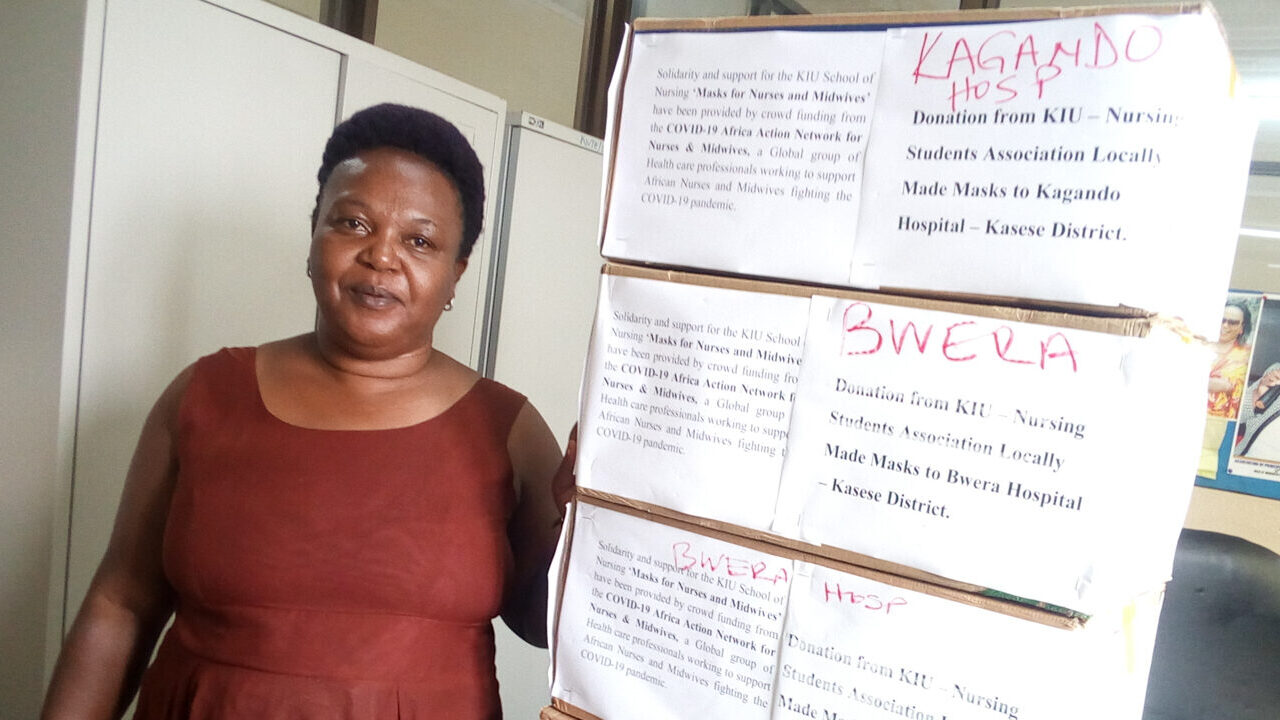 Solidarity and support for the KIU School of
Nursing ‘Masks for Nurses and Midwives’
have been provided by crowd funding from
the COVID-19 Africa Action Network for
Nurses & Midwives, a Global group of
Health care professionals working to support
African Nurses and Midwives fighting the
COVID-19 pandemic.
KAGANDO
HOSP
Donation from KIU – Nursing
Students Association Locally
Made Masks to Kagando
Hospital – Kasese District.
Solidarity and support for the KIU School
Nursing ‘Masks for Nurses and Midwive
have been provided by crowd funding fro
the COVID-19 Africa Action Network f
Nurses & Midwives, a Global group
Health care professionals working to suppo
African Nurses and Midwives fighting t
COVID-19 pandemic.
BWERA
Donation from KIU – Nursing
Students Association Locally
Made Masks to Bwera Hospital
– Kasese District.
BWERA
Solidarity and support for the KIU School of
Nursing ‘Masks for Nurses and Midwives’
have been provided by crowd funding from
the COVID-19 Africa Action Network for
Nurses & Midwives, a Global group of
Health care professionals working to support
African Nurses and Midwives fighting the
COVID-19 pandemic.
HOSP
Donation from KIU – Nursing
Students Association Local
Made Masks to Bwera